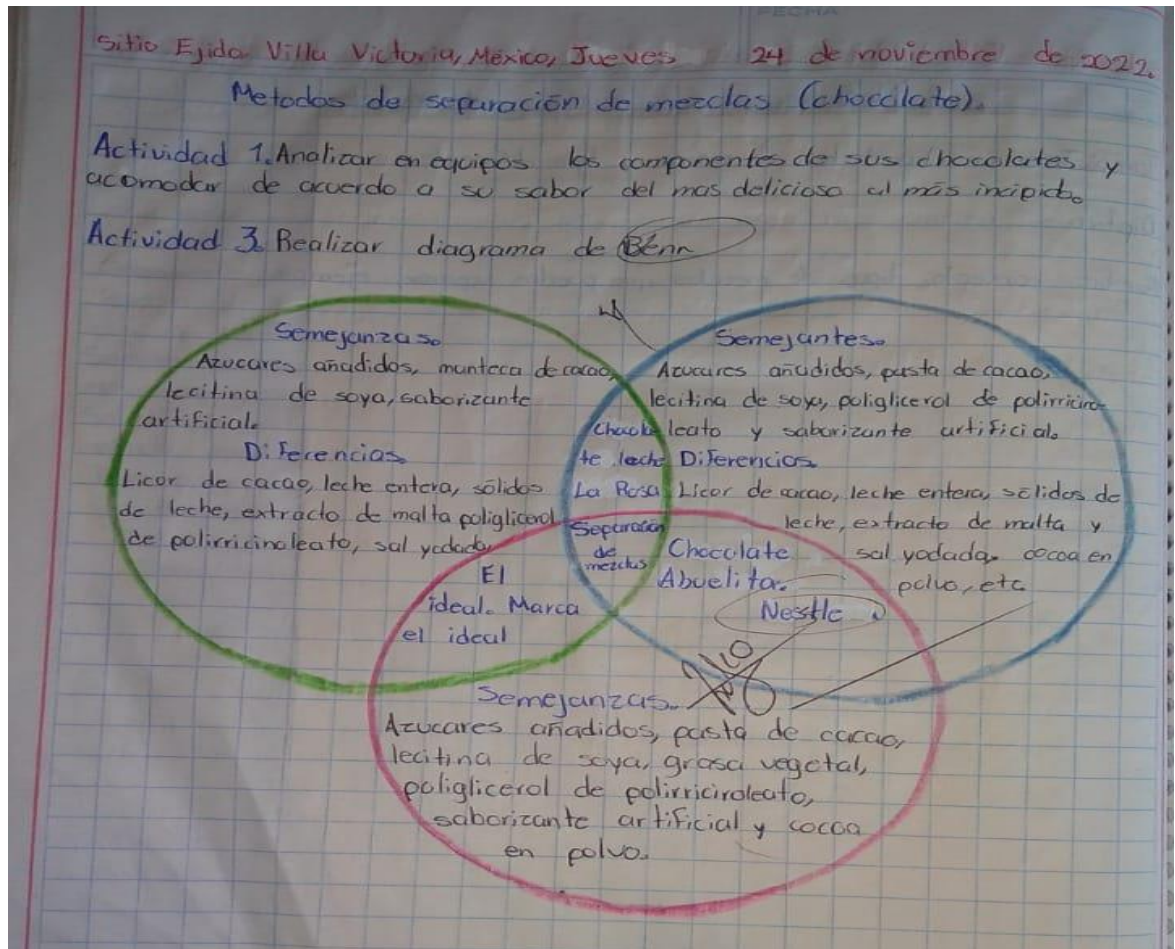 FECHA
Sitio Ejido Villa Victoria, México, Jueves 24 de noviembre de 2022.
Metodos de separación de mezclas (chocolate).
Actividad 1. Analizar en equipos los componentes de sus chocolates y
acomodar de acuerdo a su sabor del mas delicioso al más incipido.
Actividad 3. Realizar diagrama de Bénn
Semejanzas.
Azucares añadidos, manteca de cacao,
lecitina de soya, saborizante
artificial.
Diferencias.
Licor de cacao, leche entera, sólidos
de leche, extracto de malta poliglicerol
de polirricinoleato, sal yodada.
Semejantes.
Azucares añadidos, pasta de cacao,
lecitina de soya, poliglicerol de polirricino-
leato y saborizante artificial.
Diferencias.
Licor de cacao, leche entera, sólidos de
leche, extracto de malta y
sal yodada. cocoa en
polvo, etc
Chocola
te leche
La Rosa
Separación
de
mezclas
Chocolate
Abuelita.
Nestle
El
ideal. Marca
el ideal
Semejanzas.
Azucares añadidos, pasta de cacao,
lecitina de soya, grasa vegetal,
poliglicerol de polirriciroleato,
saborizante artificial y cocoa
en polvo.